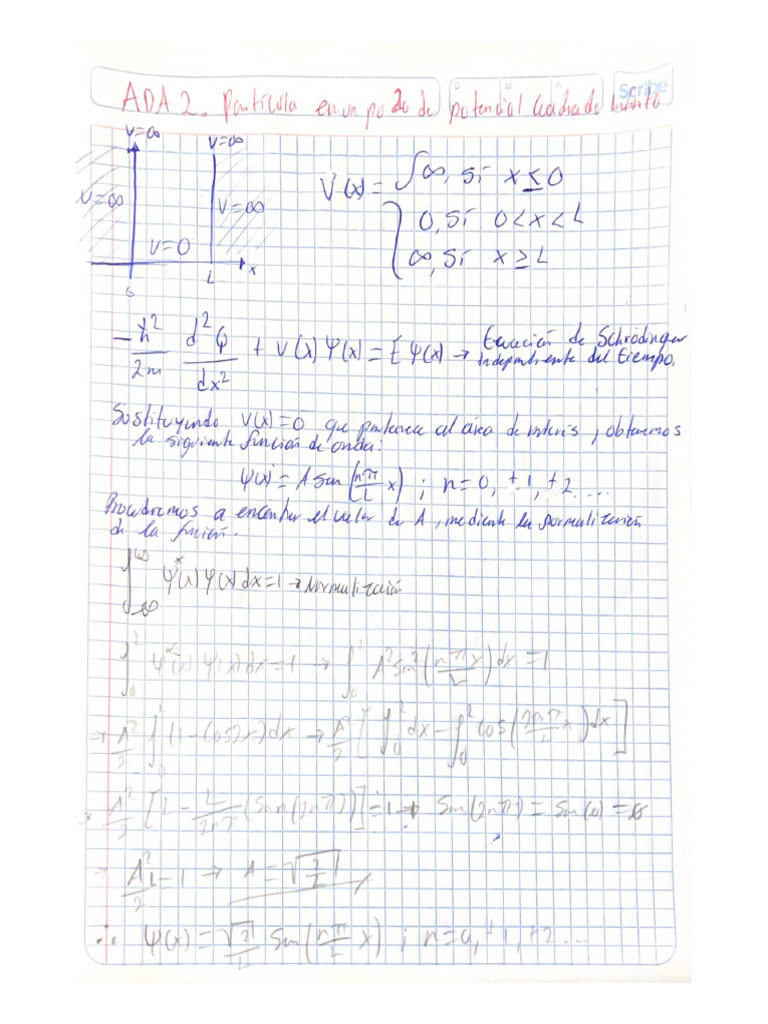 ADA 2. Partícula en un pozo de potencial cuadrado infinito
Scribe
V=∞ V=∞
V=∞ V=0 V=∞
0 L x
V(x) = { ∞, si x ≤ 0
0, si 0 < x < L
∞, si x ≥ L
-ħ²/2m d²φ/dx² + V(x) Ψ(x) = E Ψ(x) → Ecuación de Schrödinger
independiente del tiempo.
Sustituyendo V(x)=0 que pertenece al área de interés, obtenemos
la siguiente función de onda:
Ψ(x) = A sen (nπ/L x) ; n=0, ±1, ±2, ...
Procedremos a encontrar el valor de A, mediante la normalización
de la función.
∫ Ψ*(x) Ψ(x) dx = 1 → Normalización
∫₀ᴸ Ψ*(x) Ψ(x) dx = 1 → ∫₀ᴸ A² sen² (nπx/L) dx = 1
→ A²/2 ∫₀ᴸ (1 - Cos2x) dx → A²/2 [ ∫₀ᴸ dx - ∫₀ᴸ cos (2nπ/L x) dx ]
→ A²/2 [ L - L/2nπ (Sen(2nπ)) ] = 1 → Sen(2nπ) = Sen(0) = 0
→ A²/2 L = 1 → A = √2/L
∴ Ψ(x) = √2/L Sen (nπ/L x) ; n=0, ±1, ±2 ...